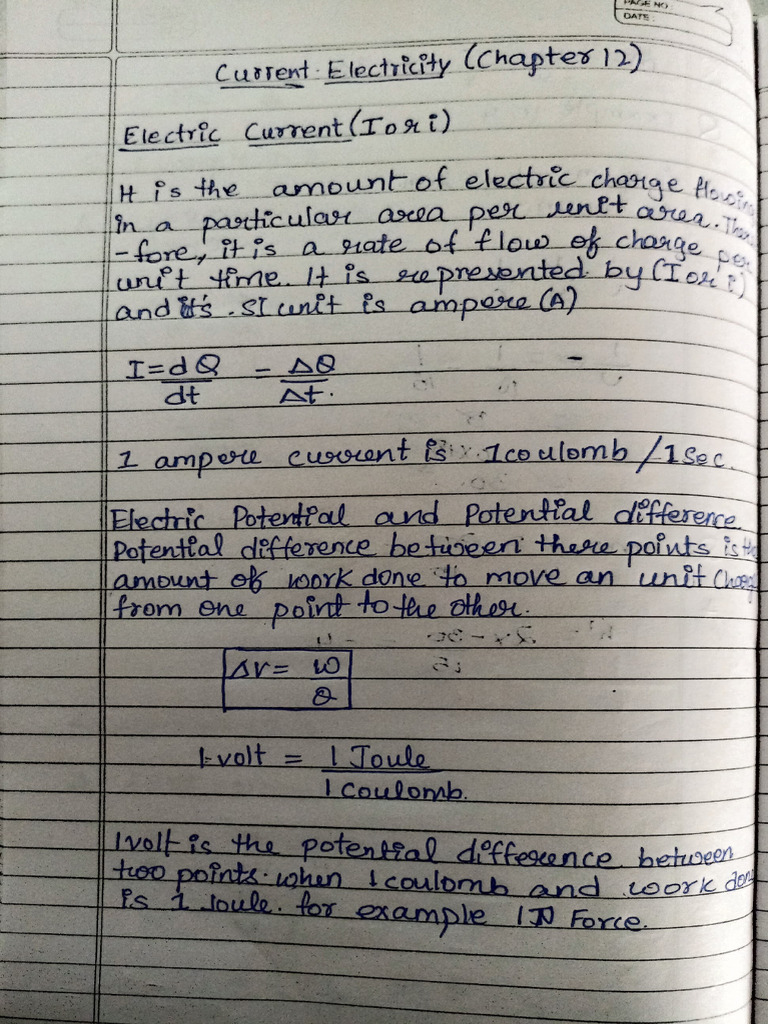 PAGE NO
DATE
Current Electricity (Chapter 12)
Electric Current (I or i)
It is the amount of electric charge flowin
in a particular area per unit area. There
-fore, it is a rate of flow of charge per
unit time. It is represented by (I or i)
and it's . SI unit is ampere (A)
I = dQ/dt = ΔQ/Δt.
1 ampere current is 1 coulomb / 1 Sec.
Electric Potential and Potential difference
Potential difference between there points is the
amount of work done to move an unit Charge
from one point to the other.
ΔV = W/Q
1 volt = 1 Joule / 1 Coulomb.
1 volt is the potential difference between
two points. when 1 coulomb and work done
is 1 Joule. for example 1N Force.